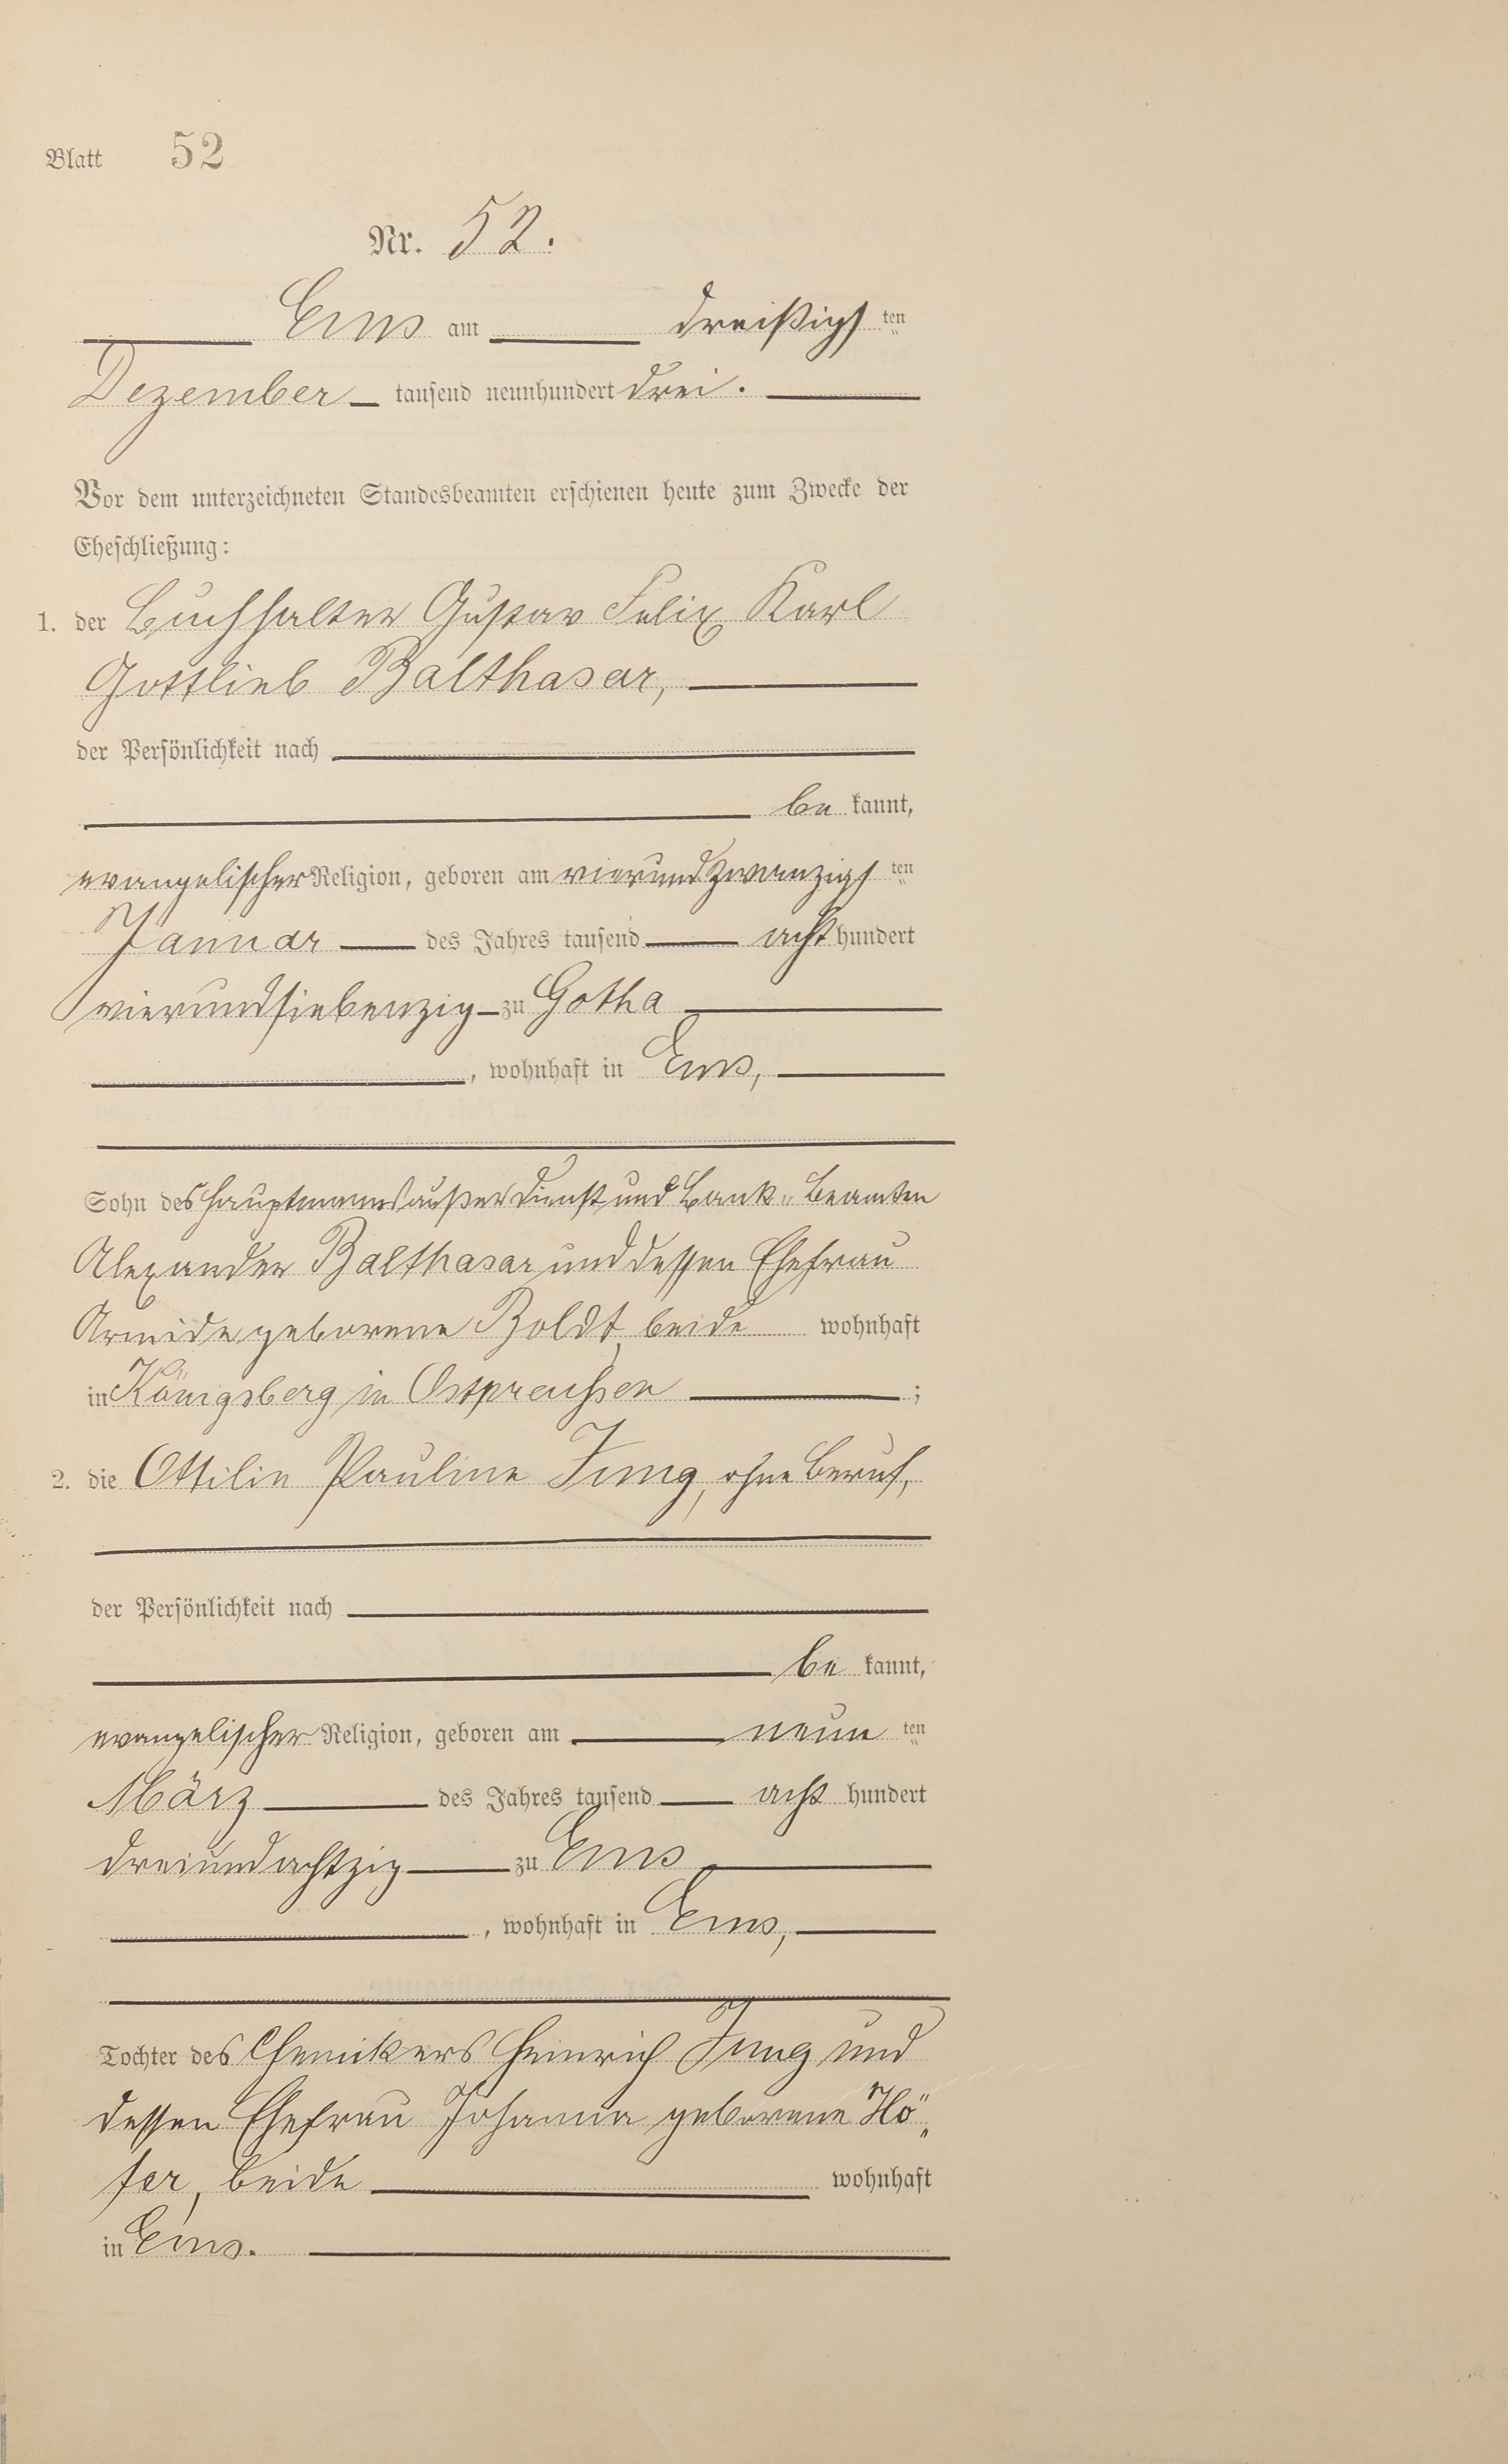 Blatt 52
Nr. 52.
Ems am dreißigsten
Dezember tausend neunhundert drei.
Vor dem unterzeichneten Standesbeamten erschienen heute zum Zwecke der
Eheschließung:
1. der Buchhalter Gustav Felix Karl
Gottlieb Balthasar,
der Persönlichkeit nach
be kannt,
evangelischer Religion, geboren am vierundzwanzigsten
Januar des Jahres tausend acht hundert
vierundsiebenzig zu Gotha
, wohnhaft in Ems,
Sohn des Hauptmanns außer Dienst und Bank„Beamten
Alexander Balthasar und dessen Ehefrau
Armide geborene Boldt, beide wohnhaft
in Königsberg in Ostpreußen ;
2. die Ottilie Pauline Jung, ohne Beruf,
der Persönlichkeit nach
be kannt,
evangelischer Religion, geboren am neun ten
März des Jahres tausend acht hundert
dreiundachtzig zu Ems
, wohnhaft in Ems,
Tochter des Chemikers Heinrich Jung und
dessen Ehefrau Johanna geborene Hö„
fer, beide wohnhaft
in Ems.